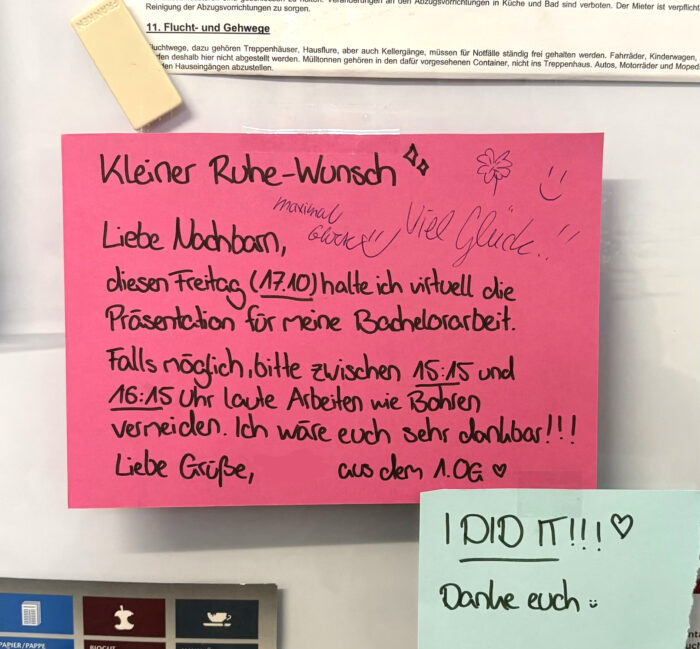 Reinigung der Abzugsvorrichtungen zu sorgen.
Abzugsvorrichtungen in Küche und Bad sind verboten. Der Mieter ist verpflicht
11. Flucht- und Gehwege
luchtwege, dazu gehören Treppenhäuser, Hausflure, aber auch Kellergänge, müssen für Notfälle ständig frei gehalten werden. Fahrräder, Kinderwagen,
fen deshalb hier nicht abgestellt werden. Mülltonnen gehören in den dafür vorgesehenen Container, nicht ins Treppenhaus. Autos, Motorräder und Moped
den Hauseingängen abzustellen.
Kleiner Ruhe-Wunsch
maximal
Viel Glück!!
Liebe Nachbarn,
diesen Freitag (17.10) halte ich virtuell die
Präsentation für meine Bachelorarbeit.
Falls möglich, bitte zwischen 15:15 und
16:15 Uhr laute Arbeiten wie Bohren
vermeiden. Ich wäre euch sehr dankbar!!!
Liebe Grüße, aus dem 1.OG ♡
I DID IT!!! ♡
Danke euch
PAPIER/PAPPE